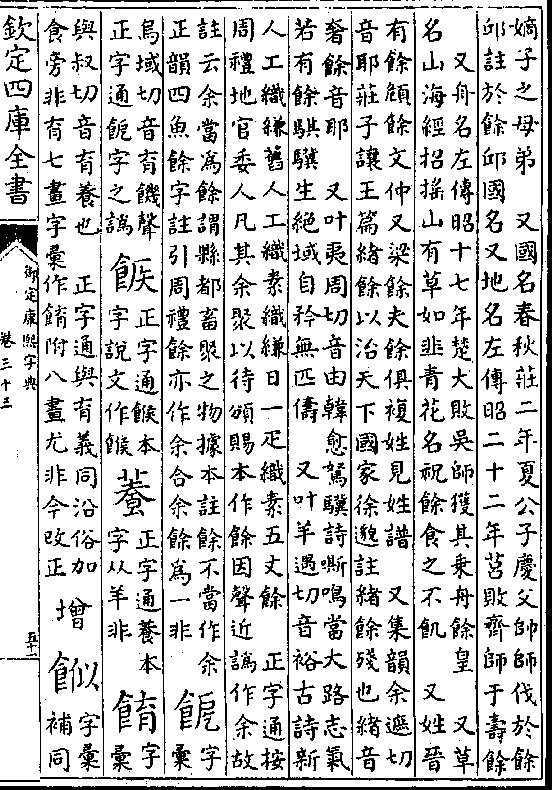 嫡子之母弟　又國名春秋莊二年夏公子慶父帥師伐於餘
邱註於餘邱國名又地名左傳昭二十二年莒敗齊師于壽餘
又舟名左傳昭十七年楚大敗吳師獲其乗舟餘皇　又草
名山海經招搖山有草如韭青花名祝餘食之不飢　又姓晉
有餘頠餘文仲又梁餘夫餘俱複姓見姓譜　又集韻余遮切
音耶莊子讓王篇緒餘以治天下國家徐邈註緒餘殘也緒音
奢餘音耶　又叶夷周切音由韓愈駑驥詩嘶鳴當大路志氣
若有餘騏驥生絕域自矜無匹儔　又叶羊遇切音裕古詩新
人工織縑舊人工織素織縑日一疋織素五丈餘　正字通按
周禮地官委人凡其余聚以待頒賜本作餘因聲近譌作余故
註云余當為餘謂縣都畜聚之物據本註餘不當作余
正韻四魚餘字註引周禮餘亦作余合余餘為一非
字
彙
烏域切音育饑聲
正字通字之譌
正字通餱本
字說文作餱
正字通養本
字从羊非
字
彙
與叔切音育養也　正字通與育義同沿俗加
食旁非有七畫字彙作附八畫尤非今改正
增
字彙
補同
欽定四庫全書
御定康熙字典
卷三十三
五十二